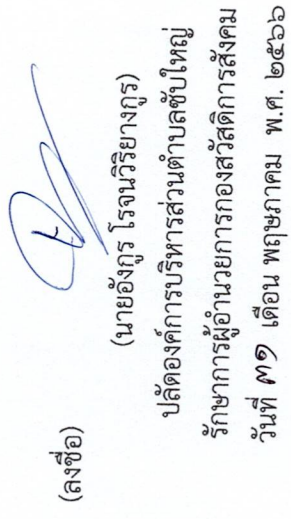 (ลงชื่อ)
(นายอังกูร โรจนวิริยางกูร)
ปลัดองค์การบริหารส่วนตำบลซับใหญ่
รักษาการผู้อำนวยการกองสวัสดิการสังคม
วันที่ ๓๑ เดือน พฤษภาคม พ.ศ. ๒๕๖๖